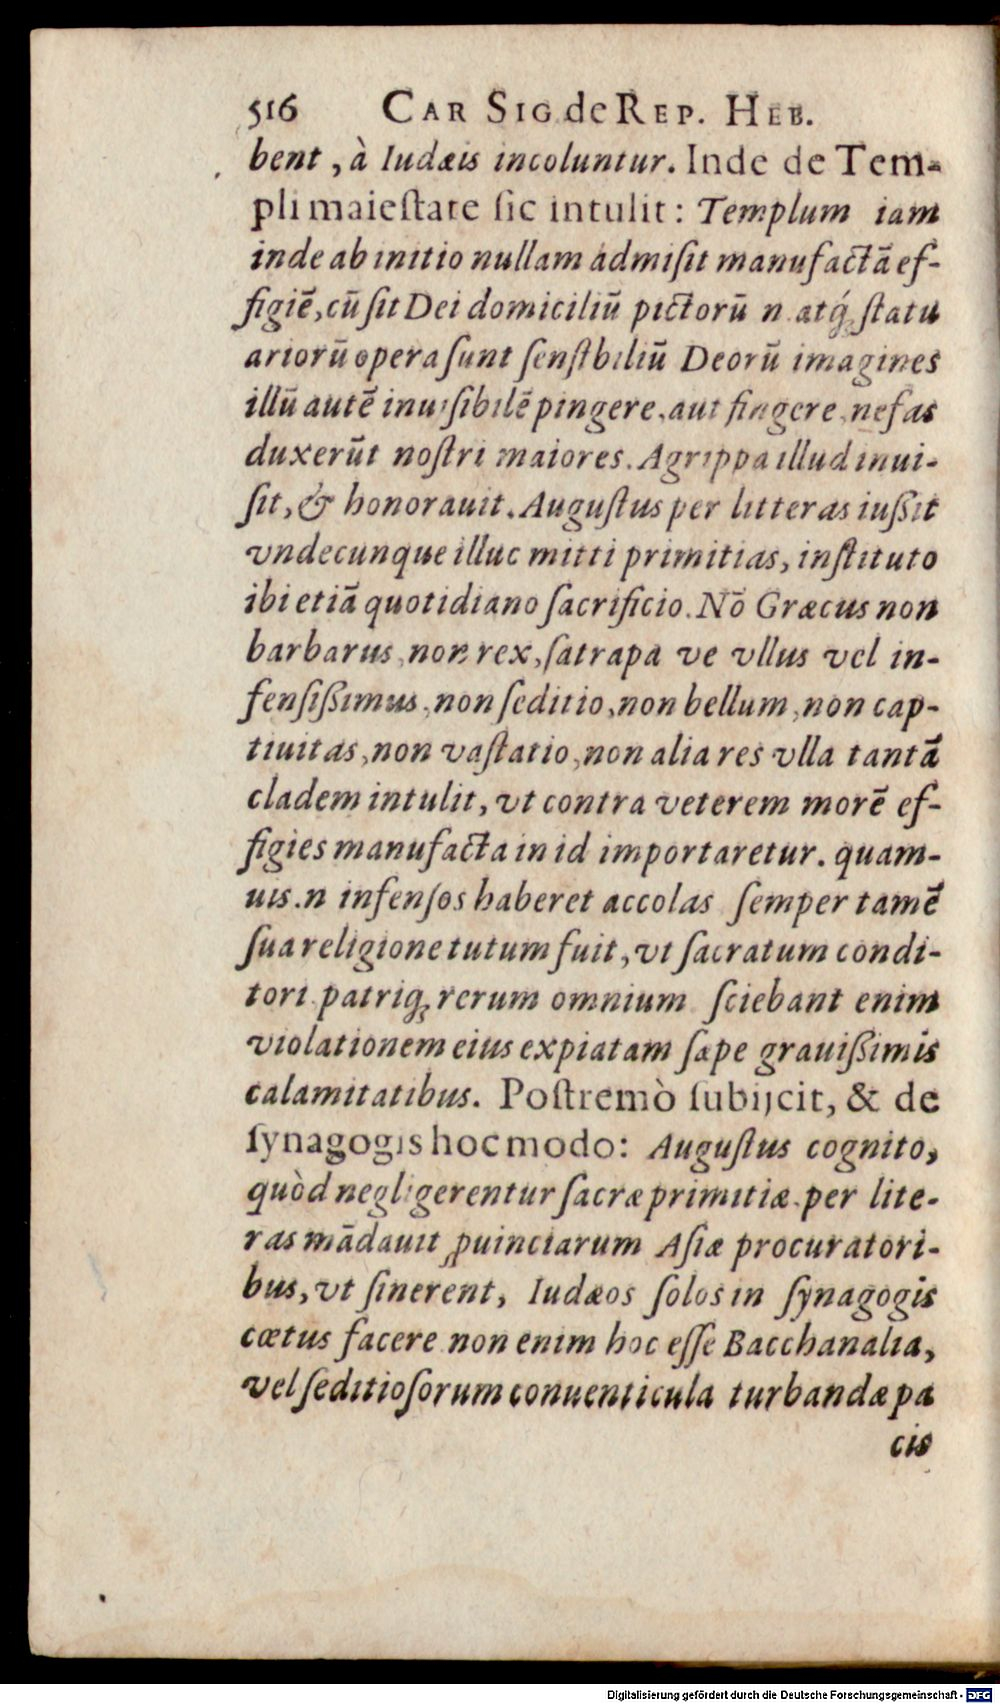 516 CAR SIG. de REP. HEB.
bent, à Iudæis incoluntur. Inde de Tem-
pli maiestate sic intulit: Templum iam
inde ab initio nullam admisit manufactā ef-
figiē, cū sit Dei domiciliū pictorū n. atq́; statu
ariorū opera sunt sensibiliū Deorū imagines
illū autē inuisibilē pingere, aut fingere, nefas
duxerūt nostri maiores. Agrippa illud inui-
sit, & honorauit. Augustus per litteras iußit
vndecunque illuc mitti primitias, instituto
ibi etiā quotidiano sacrificio. Nō Græcus non
barbarus, non rex, satrapa ve vllus vel in-
fensißimus, non seditio, non bellum, non cap-
tiuitas, non vastatio, non alia res vlla tantā
cladem intulit, vt contra veterem morē ef-
figies manufacta in id importaretur. quam-
uis. n infensos haberet accolas semper tamē
sua religione tutum fuit, vt sacratum condi-
tori patriq; rerum omnium sciebant enim
violationem eius expiatam sæpe grauißimis
calamitatibus. Postremò subijcit, & de
synagogis hoc modo: Augustus cognito,
quòd negligerentur sacræ primitiæ per lite-
ras mādauit ꝓuinciarum Asiæ procuratori-
bus, vt sinerent, Iudæos solos in synagogis
cœtus facere non enim hoc esse Bacchanalia,
vel seditiosorum conuenticula turbandæ pa
cis
Digitalisierung gefördert durch die Deutsche Forschungsgemeinschaft - DFG